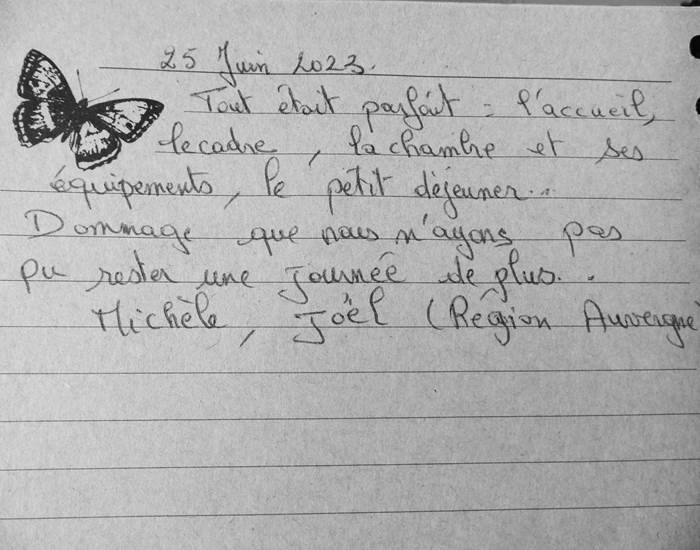 25 Juin 2023.
Tout était parfait : l'accueil,
le cadre, la chambre et ses
équipements, le petit déjeuner...
Dommage que nous n'ayons pas
pu rester une journée de plus..
Michèle, Joël (Région Auvergne